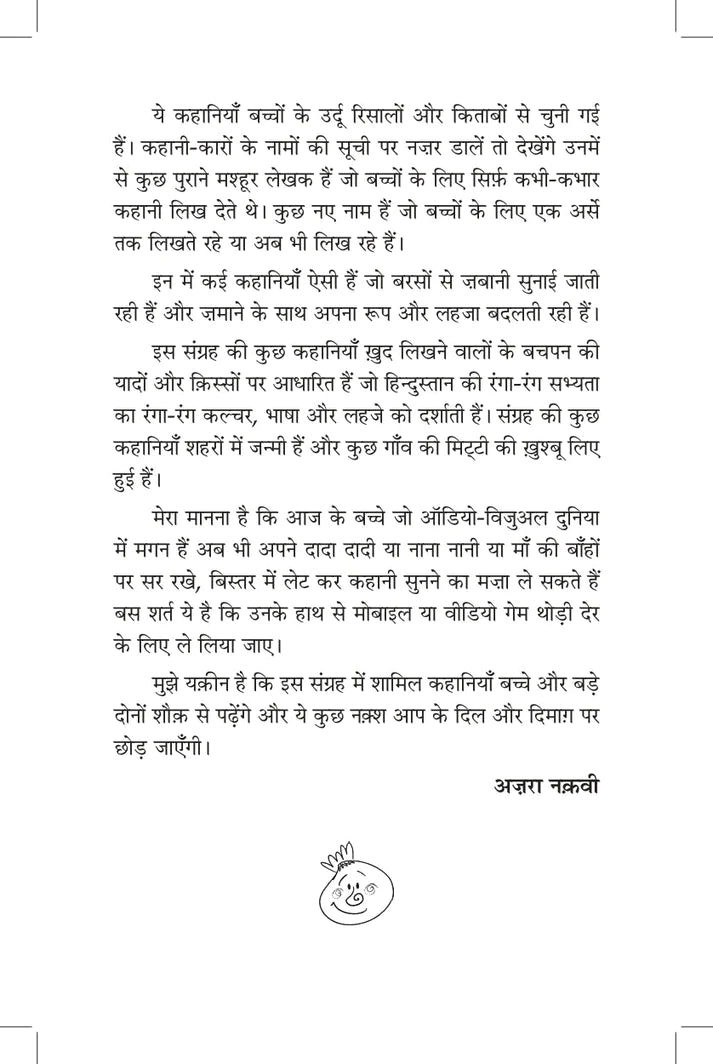 ये कहानियाँ बच्चों के उर्दू रिसालों और किताबों से चुनी गई
हैं। कहानी-कारों के नामों की सूची पर नज़र डालें तो देखेंगे उनमें
से कुछ पुराने मश्हूर लेखक हैं जो बच्चों के लिए सिर्फ़ कभी-कभार
कहानी लिख देते थे। कुछ नए नाम हैं जो बच्चों के लिए एक अर्से
तक लिखते रहे या अब भी लिख रहे हैं।
इन में कई कहानियाँ ऐसी हैं जो बरसों से ज़बानी सुनाई जाती
रही हैं और ज़माने के साथ अपना रूप और लहजा बदलती रही हैं।
इस संग्रह की कुछ कहानियाँ ख़ुद लिखने वालों के बचपन की
यादों और क़िस्सों पर आधारित हैं जो हिन्दुस्तान की रंगा-रंग सभ्यता
का रंगा-रंग कल्चर, भाषा और लहजे को दर्शाती हैं। संग्रह की कुछ
कहानियाँ शहरों में जन्मी हैं और कुछ गाँव की मिट्टी की ख़ुश्बू लिए
हुई हैं।
मेरा मानना है कि आज के बच्चे जो ऑडियो-विजुअल दुनिया
में मगन हैं अब भी अपने दादा दादी या नाना नानी या माँ की बाँहों
पर सर रखे, बिस्तर में लेट कर कहानी सुनने का मज़ा ले सकते हैं
बस शर्त ये है कि उनके हाथ से मोबाइल या वीडियो गेम थोड़ी देर
के लिए ले लिया जाए।
मुझे यक़ीन है कि इस संग्रह में शामिल कहानियाँ बच्चे और बड़े
दोनों शौक़ से पढ़ेंगे और ये कुछ नक़्श आप के दिल और दिमाग़ पर
छोड़ जाएँगी।
अज़रा नक़वी